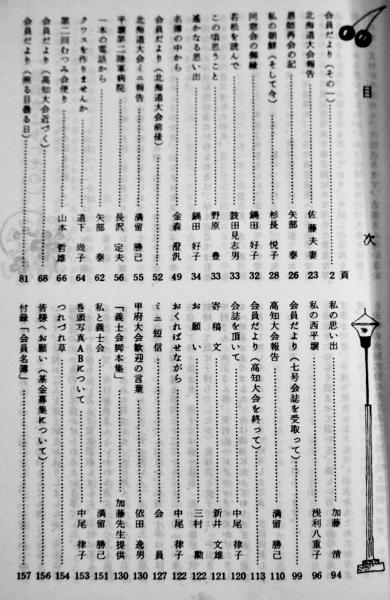 目次
会員だより（その一）…… 2 頁
北海道大会報告…… 佐藤夫妻 23
恩師再会の記…… 矢部 泰 26
私の朝鮮（そして今）…… 杉長悦子 28
同窓会の御縁…… 鍋田好子 32
若松を読んで…… 鼓田見志男 33
この頃思うこと…… 野原 豊 33
遙かなる思い出…… 鍋田好子 34
名簿の中から…… 金森澄沢 49
会員だより（北海道大会前後）…… 52
北海道大会ミニ報告…… 満留勝己 55
平壌第二陸軍病院…… 長沢定夫 56
一本の電話から…… 矢部 泰 62
クワスを作りませんか…… 道下尚子 64
第二回むつみ会便り…… 山本哲雄 66
会員だより（高知大会近づく）…… 68
会員だより（照る日曇る日）…… 81
私の思い出…… 加藤 清 94
私の西平壌…… 浅利八重子 96
会員だより（七号会誌を受取って）…… 99
高知大会報告…… 満留勝己 110
会員だより（高知大会を終って）…… 113
会誌を頂いて…… 中尾律子 120
寄稿文…… 新井文雄 121
お願い…… 三村 勲 122
おくればせながら…… 中尾律子 122
ミニ短信…… 会員 127
甲府大会歓迎の言葉…… 依田逸男 130
「義士会脚本集」…… 加藤先生提供 130
私と義士会…… 満留勝己 151
巻頭写真ABについて…… 中尾律子 153
つれづれ草…… 154
皆様へお願い（基金募集について）…… 156
付録「会員名簿」…… 157